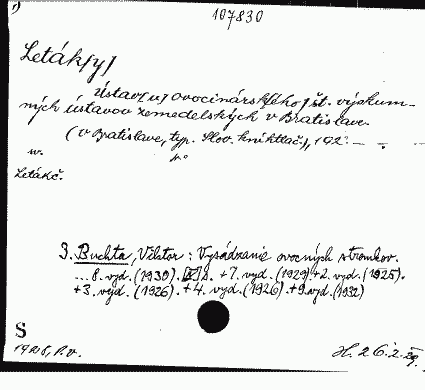 107830
Leták/y/
Ústav/u/ ovocinárskeho/ št. výskum-
ných ústavov zemedelských v Bratislave.
(v Bratislave, typ. Slov. kníhtlač.), 192 – .
8°
Letákč.
3. Buchta, Viktor: Vysádzanie ovocných stromkov.
... 8. vyd. (1930). s. +7. vyd. (1929) +2. vyd. (1925).
+3. vyd. (1926). +4. vyd. (1926). +9. vyd. (1932)
S
1928, P.v.
H. 26.2.29.